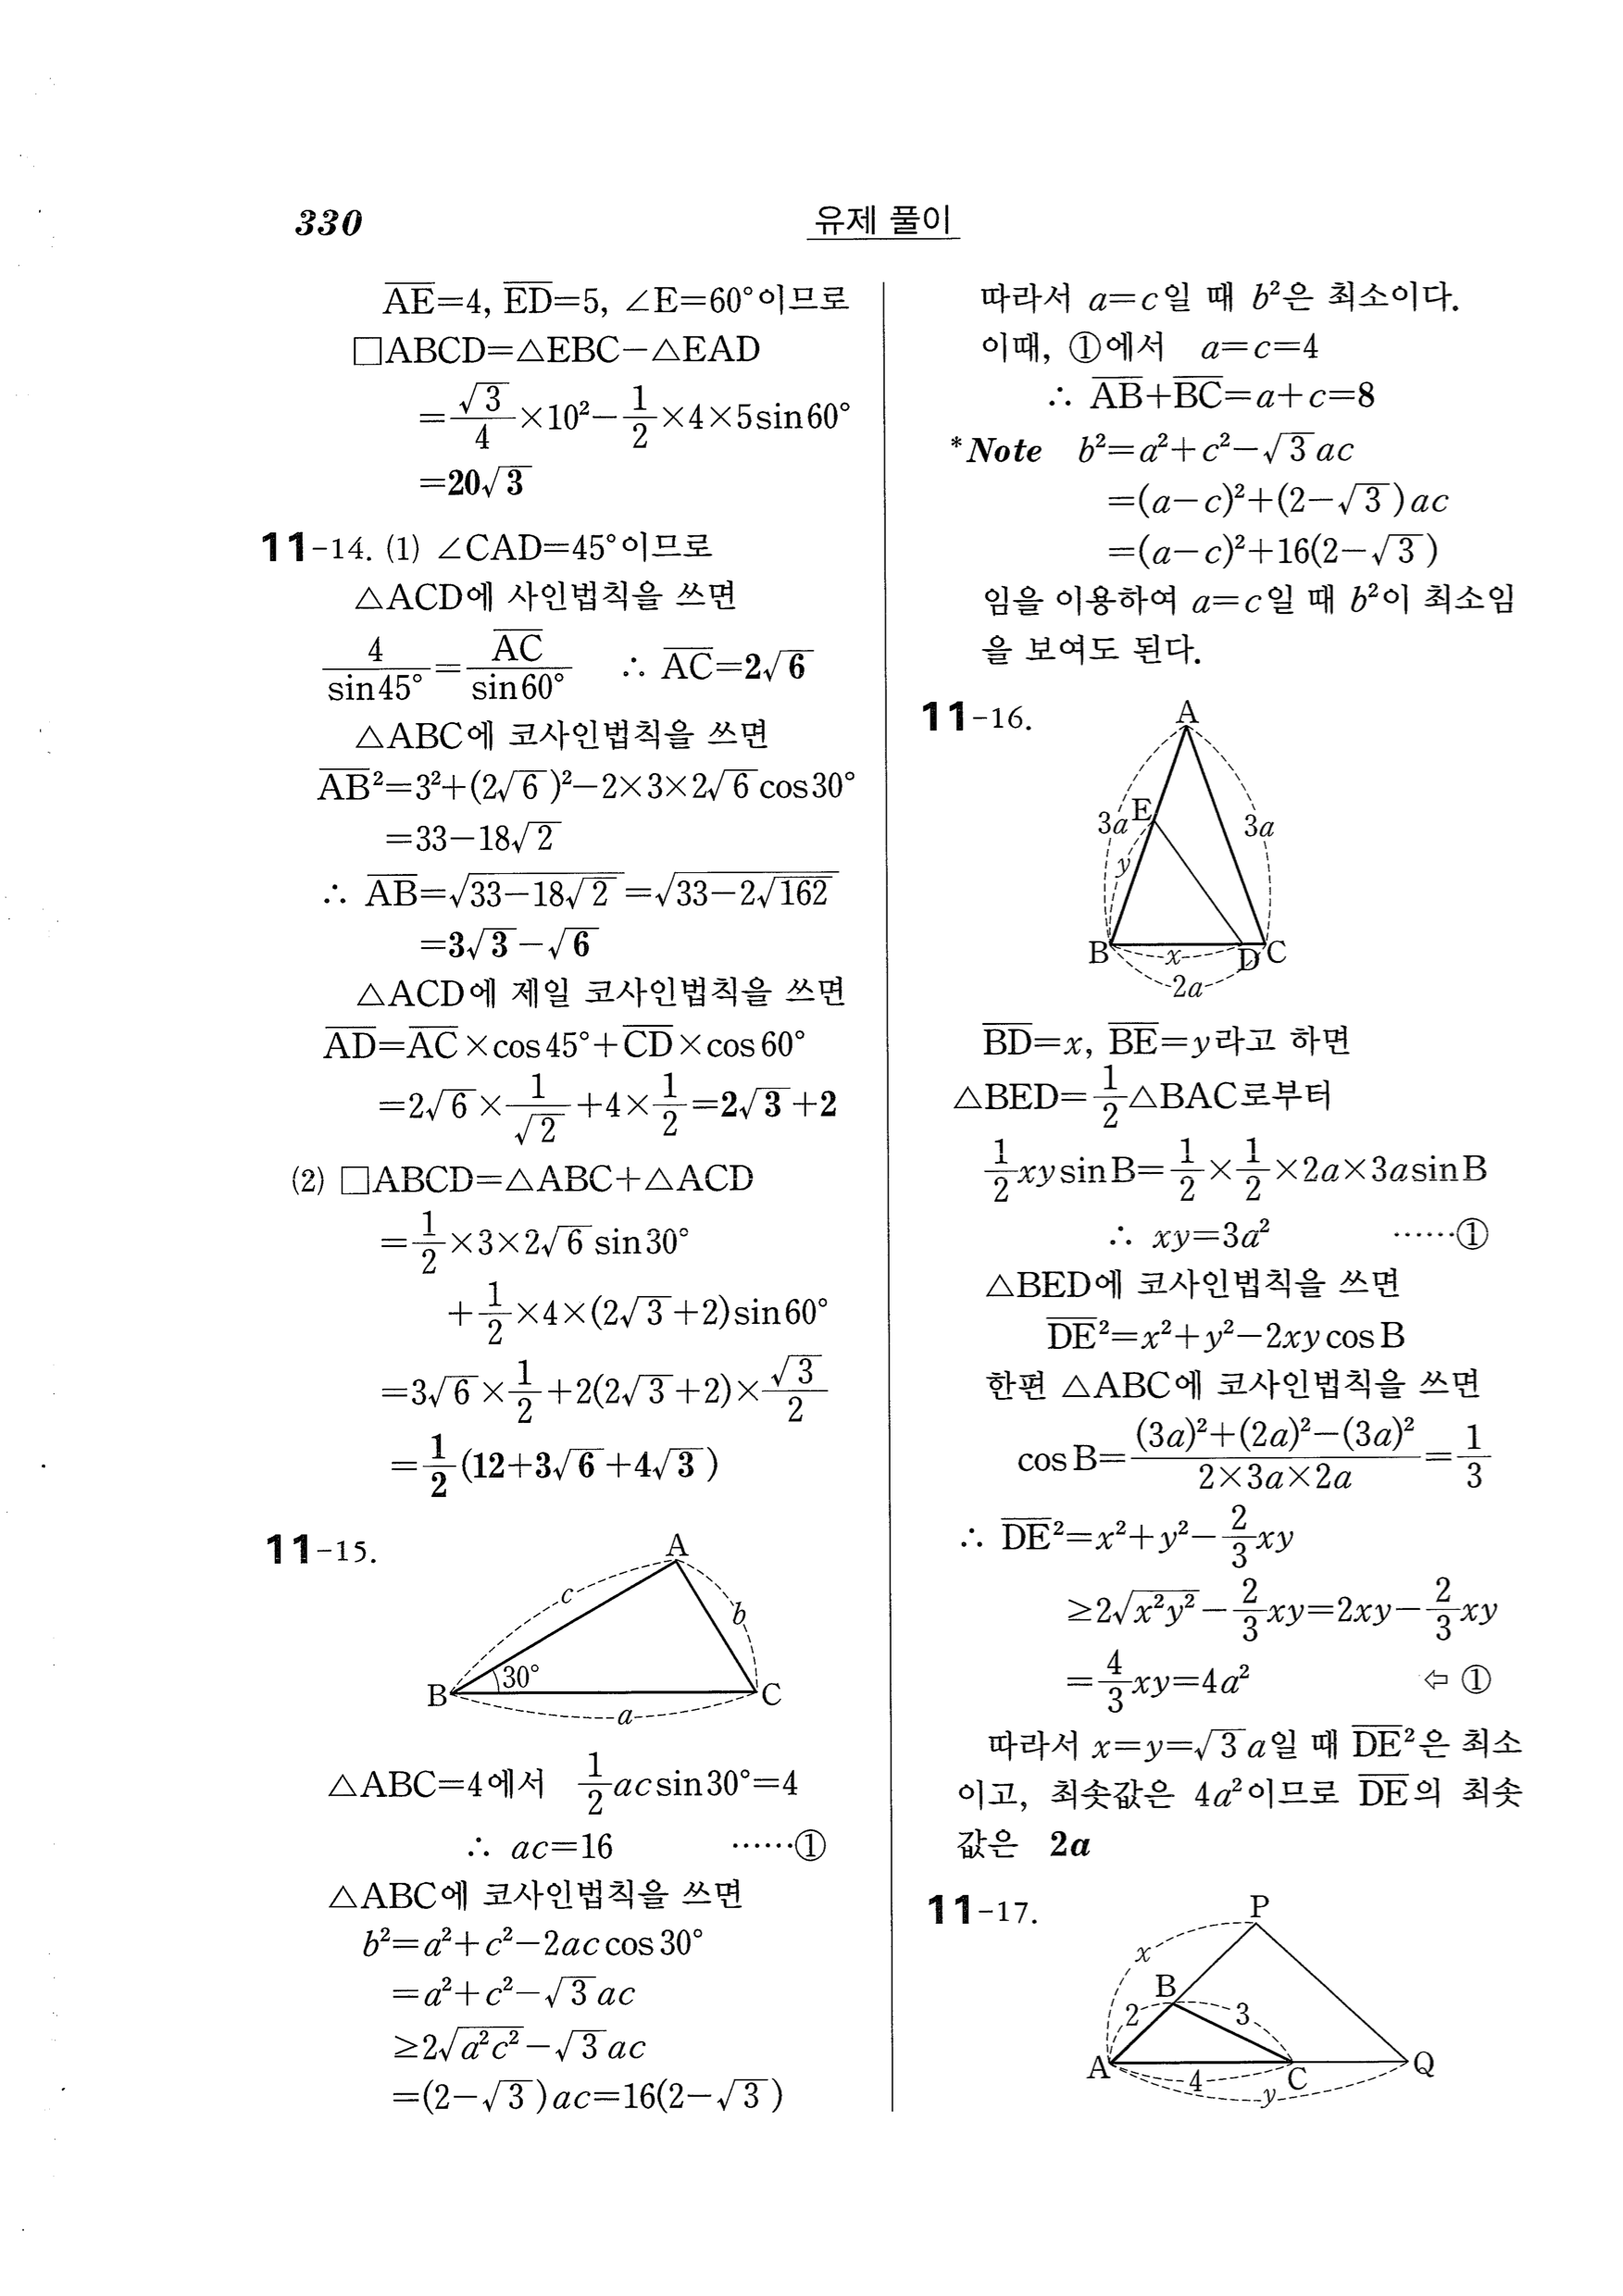 330
유제 풀이
A̅E̅=4, E̅D̅=5, ∠E=60°이므로
□ABCD=△EBC−△EAD
=√3/4×10²−1/2×4×5sin60°
=20√3
11-14. (1) ∠CAD=45°이므로
△ACD에 사인법칙을 쓰면
4/sin45°=A̅C̅/sin60° ∴ A̅C̅=2√6
△ABC에 코사인법칙을 쓰면
A̅B̅²=3²+(2√6)²−2×3×2√6cos30°
=33−18√2
∴ A̅B̅=√(33−18√2)=√(33−2√162)
=3√3−√6
△ACD에 제일 코사인법칙을 쓰면
A̅D̅=A̅C̅×cos45°+C̅D̅×cos60°
=2√6×1/√2+4×1/2=2√3+2
(2) □ABCD=△ABC+△ACD
=1/2×3×2√6sin30°
+1/2×4×(2√3+2)sin60°
=3√6×1/2+2(2√3+2)×√3/2
=1/2(12+3√6+4√3)
11-15.
A
c
b
30°
B
C
a
△ABC=4에서 1/2acsin30°=4
∴ ac=16 ……①
△ABC에 코사인법칙을 쓰면
b²=a²+c²−2accos30°
=a²+c²−√3ac
≥2√(a²c²)−√3ac
=(2−√3)ac=16(2−√3)
따라서 a=c일 때 b²은 최소이다.
이때, ①에서 a=c=4
∴ A̅B̅+B̅C̅=a+c=8
*Note b²=a²+c²−√3ac
=(a−c)²+(2−√3)ac
=(a−c)²+16(2−√3)
임을 이용하여 a=c일 때 b²이 최소임
을 보여도 된다.
11-16.
A
E
3a
3a
y
B
x
D
C
2a
B̅D̅=x, B̅E̅=y라고 하면
△BED=1/2△BAC로부터
1/2xysinB=1/2×1/2×2a×3asinB
∴ xy=3a² ……①
△BED에 코사인법칙을 쓰면
D̅E̅²=x²+y²−2xycosB
한편 △ABC에 코사인법칙을 쓰면
cosB=((3a)²+(2a)²−(3a)²)/(2×3a×2a)=1/3
∴ D̅E̅²=x²+y²−2/3xy
≥2√(x²y²)−2/3xy=2xy−2/3xy
=4/3xy=4a² ⇦ ①
따라서 x=y=√3a일 때 D̅E̅²은 최소
이고, 최솟값은 4a²이므로 D̅E̅의 최솟
값은 2a
11-17.
P
x
B
2
3
A
4
C
Q
y